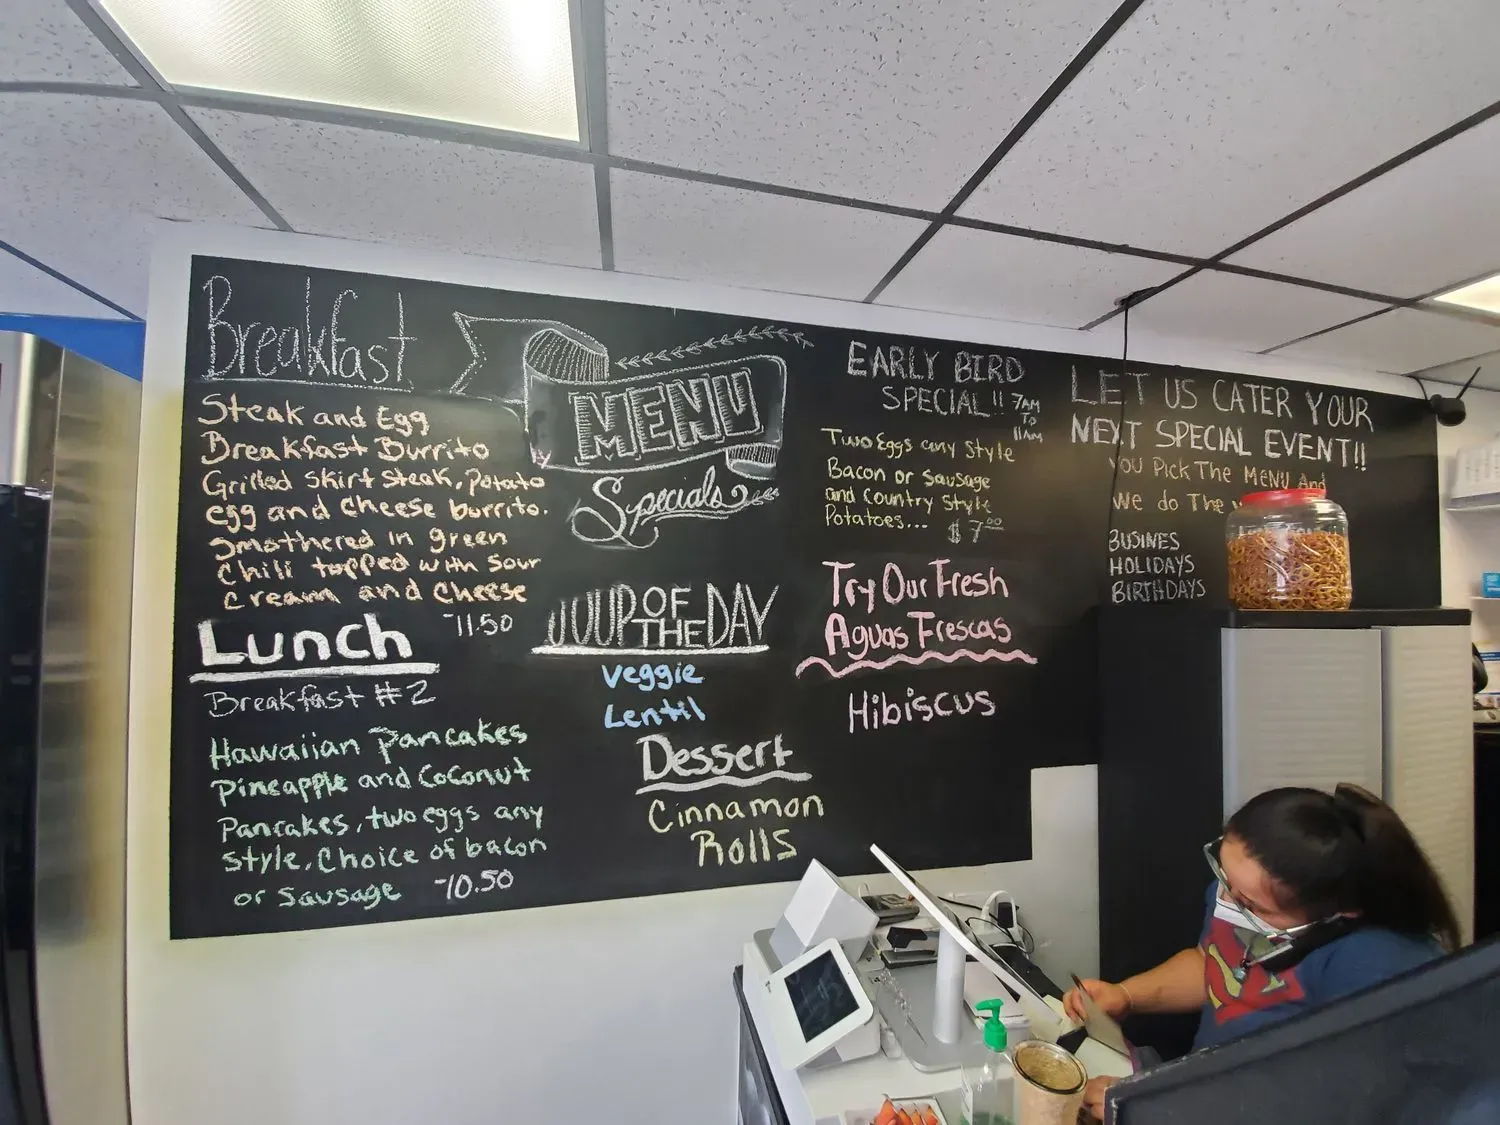 Breakfast
Steak and Egg
Breakfast Burrito
Grilled Skirt Steak, Potato
egg and cheese burrito.
Smothered in green
Chili topped with Sour
Cream and Cheese
-11.50
Lunch
Breakfast #2
Hawaiian Pancakes
Pineapple and Coconut
Pancakes, two eggs any
style, Choice of bacon
or Sausage -10.50
MENU
Specials
OF
THE DAY
Veggie
Lentil
Dessert
Cinnamon
Rolls
EARLY BIRD
SPECIAL!! 7AM
TO
11AM
Two Eggs any Style
Bacon or Sausage
and Country Style
Potatoes...
$7.00
Try Our Fresh
Aguas Frescas
Hibiscus
LET US CATER YOUR
NEXT SPECIAL EVENT!!
YOU Pick The MENU And
We do The
BUSINES
HOLIDAYS
BIRTHDAYS